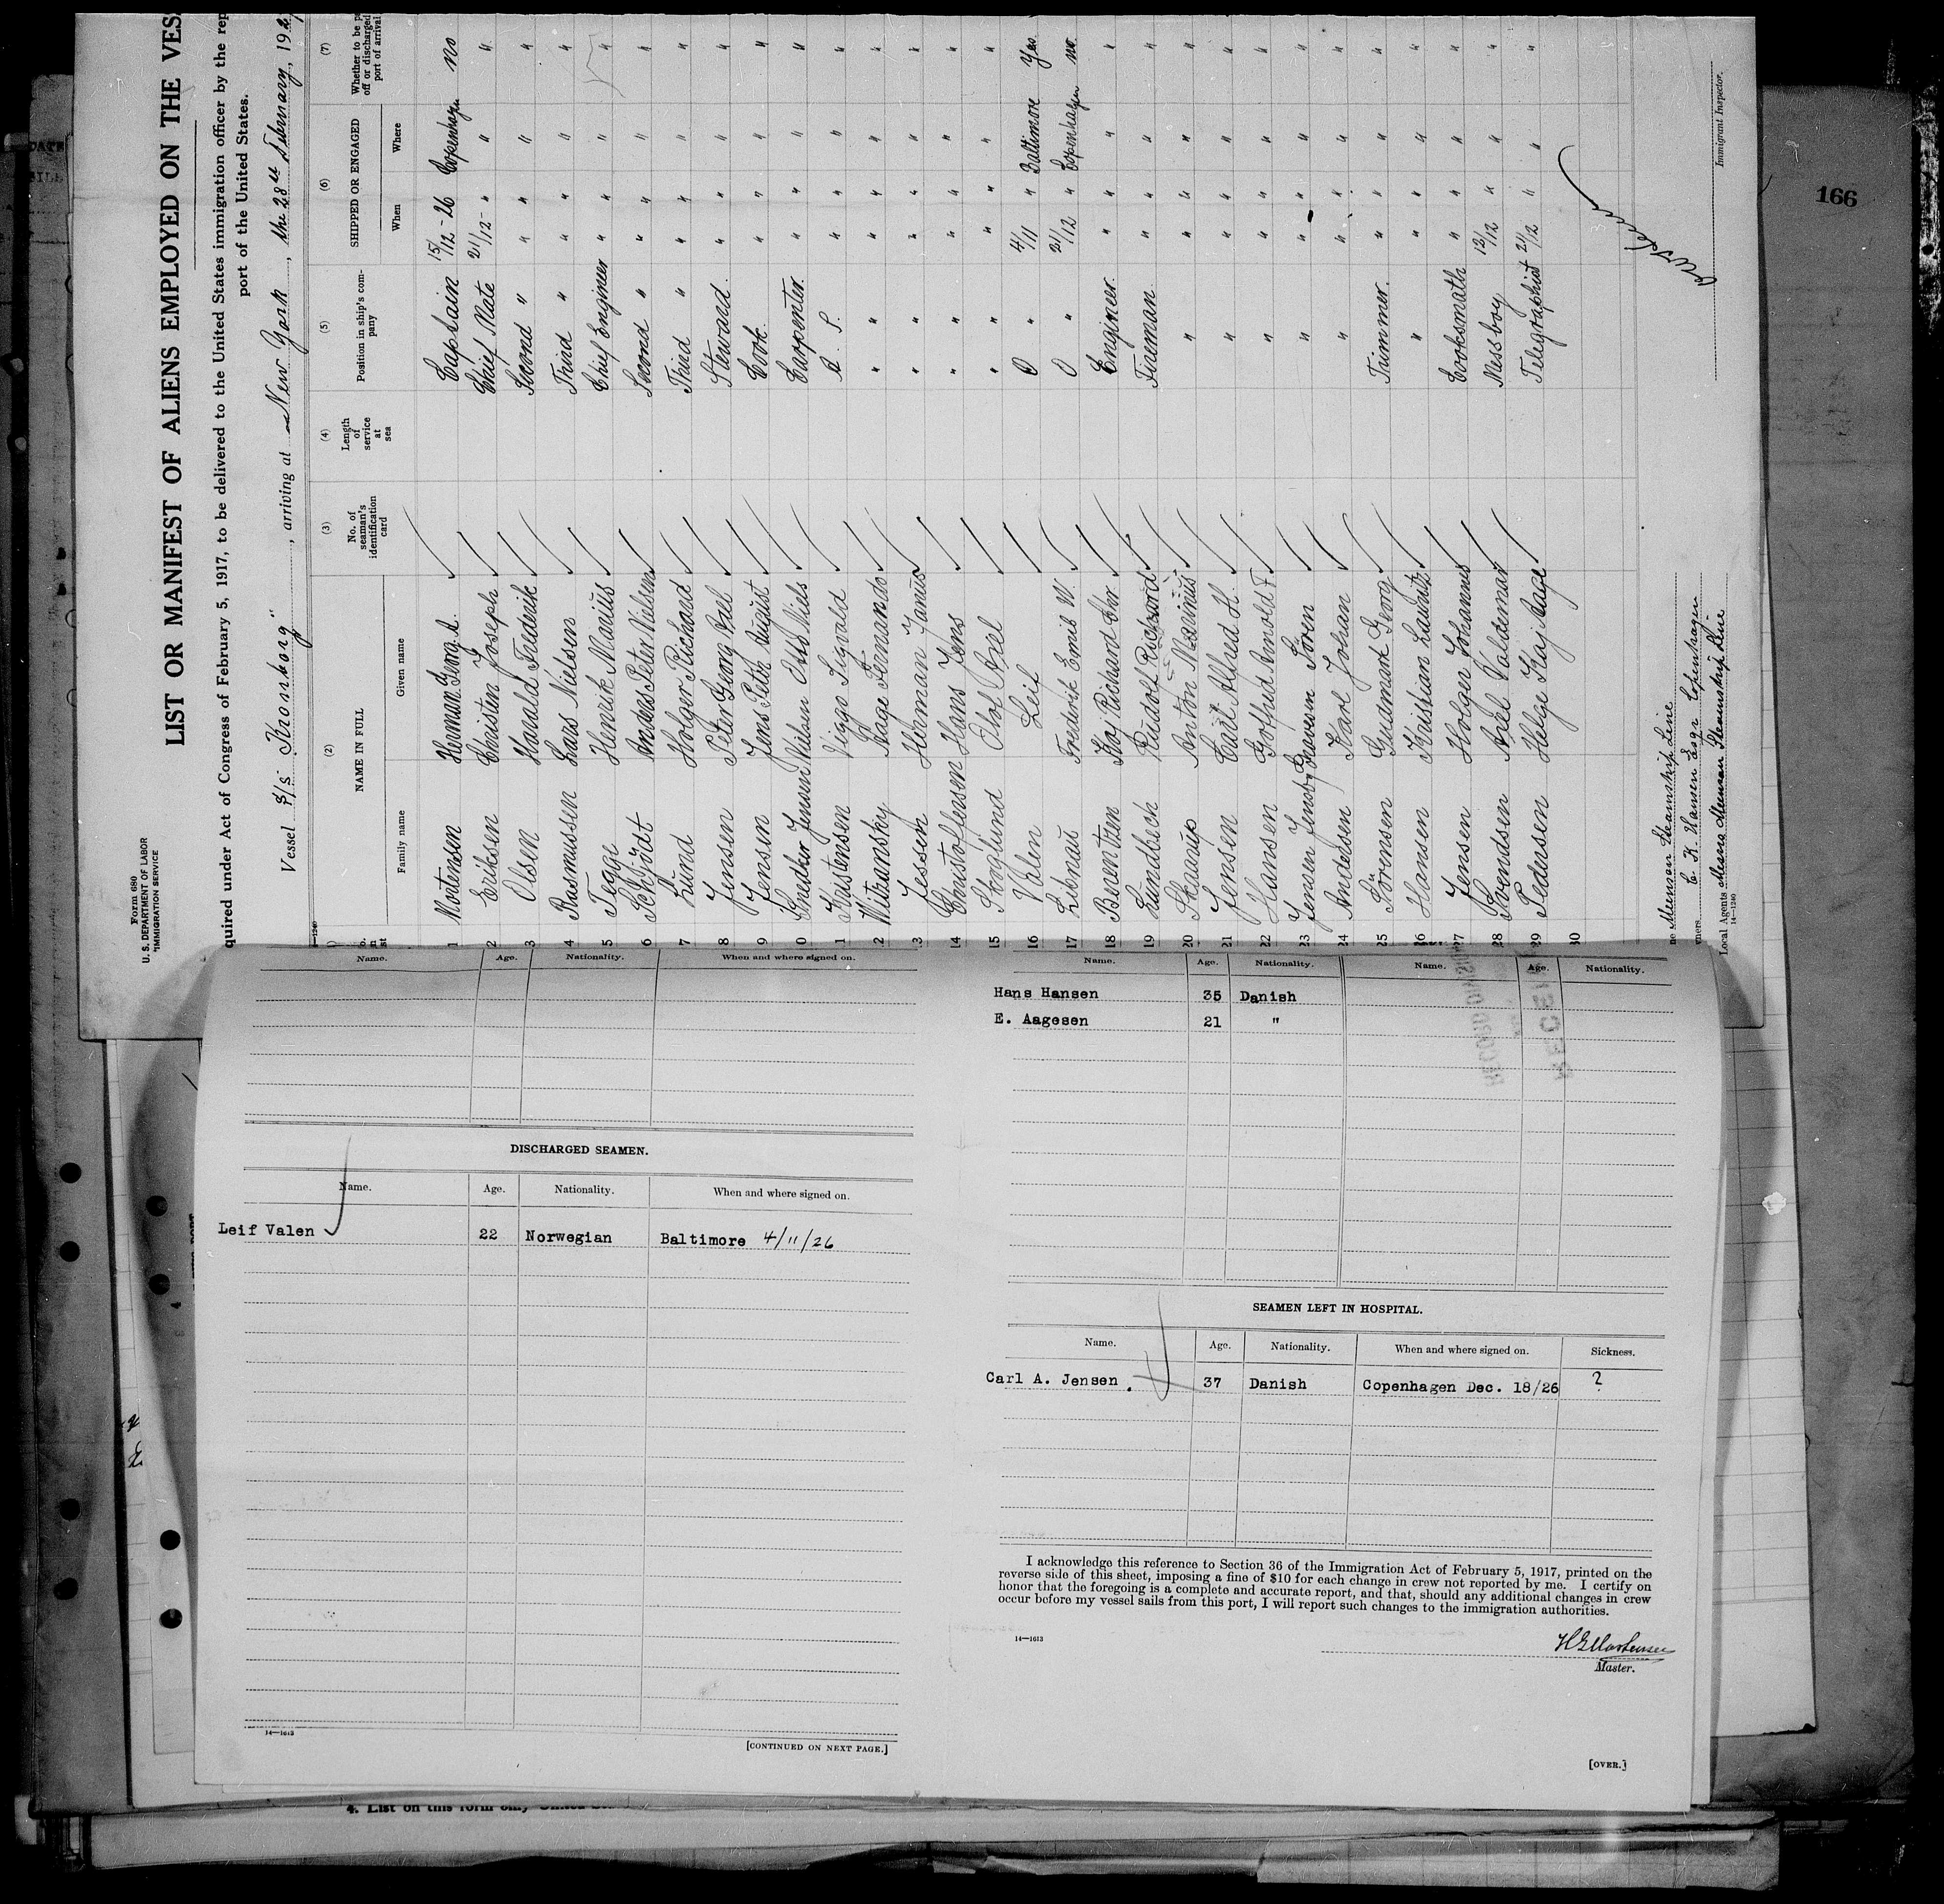 166
Form 680
U. S. DEPARTMENT OF LABOR
IMMIGRATION SERVICE
LIST OR MANIFEST OF ALIENS EMPLOYED ON THE VES
quired under Act of Congress of February 5, 1917, to be delivered to the United States immigration officer by the rep
port of the United States.
Vessel S/S "Kronborg", arriving at New York, the 28th February, 192
(2) (3) (4) (5) (6) (7)
NAME IN FULL No. of seaman's identification card Length of service at sea Position in ship's company SHIPPED OR ENGAGED Whether to be pa off or discharged port of arrival
Family name Given name When Where
1 Mortensen Herman Georg A. Captain 15/12-26 Copenhagen no
2 Eriksen Christen Joseph Chief Mate 21/12- " " "
3 Olsen Harald Frederik Second " " " " "
4 Rasmussen Lars Nielsen Third " " " " "
5 Tegge Henrik Marius Chief Engineer " " " "
6 Schjödt Anders Peter Nielsen Second " " " " "
7 Lund Holger Richard Third " " " " "
8 Jensen Peter Georg Steward " " " "
9 Jensen Jens Peter August Cook " " " "
0 Jensen Nielsen Otto Niels Carpenter " " " "
1 Kristensen Viggo Sigvald A. S. " " " "
2 Witzansky Aage Fernando " " " " "
13 Jessen Herman Janus " " " " "
14 Christoffersen Hans Jens " " " " "
15 Skoglund Olof Axel " " " " "
16 Valen Leif O " 4/11 " Baltimore Yes
17 Libnau Frederik Emil W. O " 21/12 " Copenhagen no
18 Berentzen Kai Richard Engineer " " " "
19 Lundbech Rudolf Richard Fireman " " " "
20 Skaarup Anton Marinus " " " " "
21 Jensen Carl Alfred H. " " " " "
22 Hansen Gotfred Arnold F " " " " "
23 Jensen Sören " " " " "
24 Andersen Karl Johan " " " " "
25 Sörensen Gudmart Georg Trimmer " " " "
26 Hansen Kristian Lauritz " " " " "
27 Jensen Holger Johannes Cooksmath " " " "
28 Svendsen Axel Valdemar Messboy 12/12 " " "
29 Pedersen Helge Kaj Aage Telegraphist 21/12 " " "
30
Immigrant Inspector.
Munson Steamship Line
wners C. K. Hansen Esqr Copenhagen
Local Agents Messrs Munson Steamship Line
14—1240
Name. Age. Nationality. When and where signed on.
DISCHARGED SEAMEN.
Name. Age. Nationality. When and where signed on.
Leif Valen 22 Norwegian Baltimore 4/11/26
14—1613
[CONTINUED ON NEXT PAGE.]
Name. Age. Nationality. Name. Age. Nationality.
Hans Hansen 35 Danish
E. Aagesen 21 "
SEAMEN LEFT IN HOSPITAL.
Name. Age. Nationality. When and where signed on. Sickness.
Carl A. Jensen. 37 Danish Copenhagen Dec. 18/26 ?
I acknowledge this reference to Section 36 of the Immigration Act of February 5, 1917, printed on the
reverse side of this sheet, imposing a fine of $10 for each change in crew not reported by me. I certify on
honor that the foregoing is a complete and accurate report, and that, should any additional changes in crew
occur before my vessel sails from this port, I will report such changes to the immigration authorities.
14—1613
HGMortensen
Master.
[OVER.]
4. List on this form only